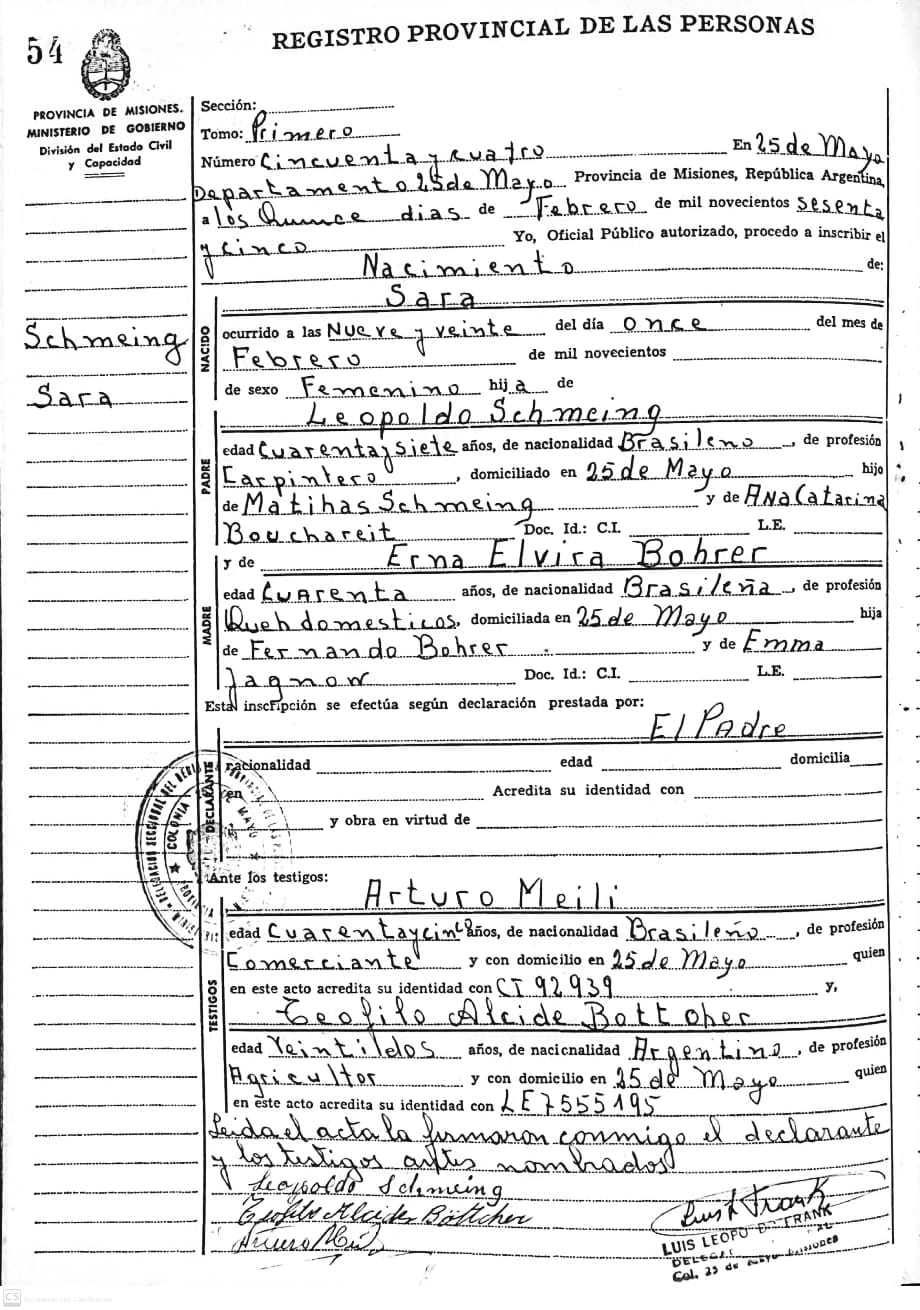 54
REGISTRO PROVINCIAL DE LAS PERSONAS
PROVINCIA DE MISIONES.
MINISTERIO DE GOBIERNO
División del Estado Civil
y Capacidad
Schmeing
Sara
Sección:
Tomo: Primero
Número Cincuenta y cuatro En 25 de Mayo
Departamento 25 de Mayo Provincia de Misiones, República Argentina,
a los Quince dias de Febrero de mil novecientos sesenta
y cinco Yo, Oficial Público autorizado, procedo a inscribir el
Nacimiento de:
Sara
NACIDO
ocurrido a las Nueve y veinte del día once del mes de
Febrero de mil novecientos
de sexo Femenino hija de
Leopoldo Schmeing
PADRE
edad Cuarenta y siete años, de nacionalidad Brasileno, de profesión
Carpintero, domiciliado en 25 de Mayo hijo
de Matihas Schmeing y de Ana Catarina
Bouchareit Doc. Id.: C.I. L.E.
y de Erna Elvira Bohrer
MADRE
edad Cuarenta años, de nacionalidad Brasileña, de profesión
Queh domesticos, domiciliada en 25 de Mayo hija
de Fernando Bohrer y de Emma
Jagnow Doc. Id.: C.I. L.E.
Esta inscripción se efectúa según declaración prestada por:
El Padre
DECLARANTE
nacionalidad edad domicilia
en Acredita su identidad con
y obra en virtud de
DELEGACION SECCIONAL DEL
COLONIA
Ante los testigos:
Arturo Meili
TESTIGOS
edad Cuarenta y cinco años, de nacionalidad Brasileño, de profesión
Comerciante y con domicilio en 25 de Mayo quien
en este acto acredita su identidad con CI 92939 y,
Teofilo Alcide Bottcher
edad Veintildos años, de nacicnalidad Argentino, de profesión
Agricultor y con domicilio en 25 de Mayo quien
en este acto acredita su identidad con LE 7555195
Leida el acta la firmaron conmigo el declarante
y los testigos antes nombrados
Leopoldo Schmeing
Teofilo Alcides Böttcher
Arturo Meili
Luis L Frank
LUIS LEOPO D. FRANK
DELEGA
Col. 25 de Mayo MISIONES
CS